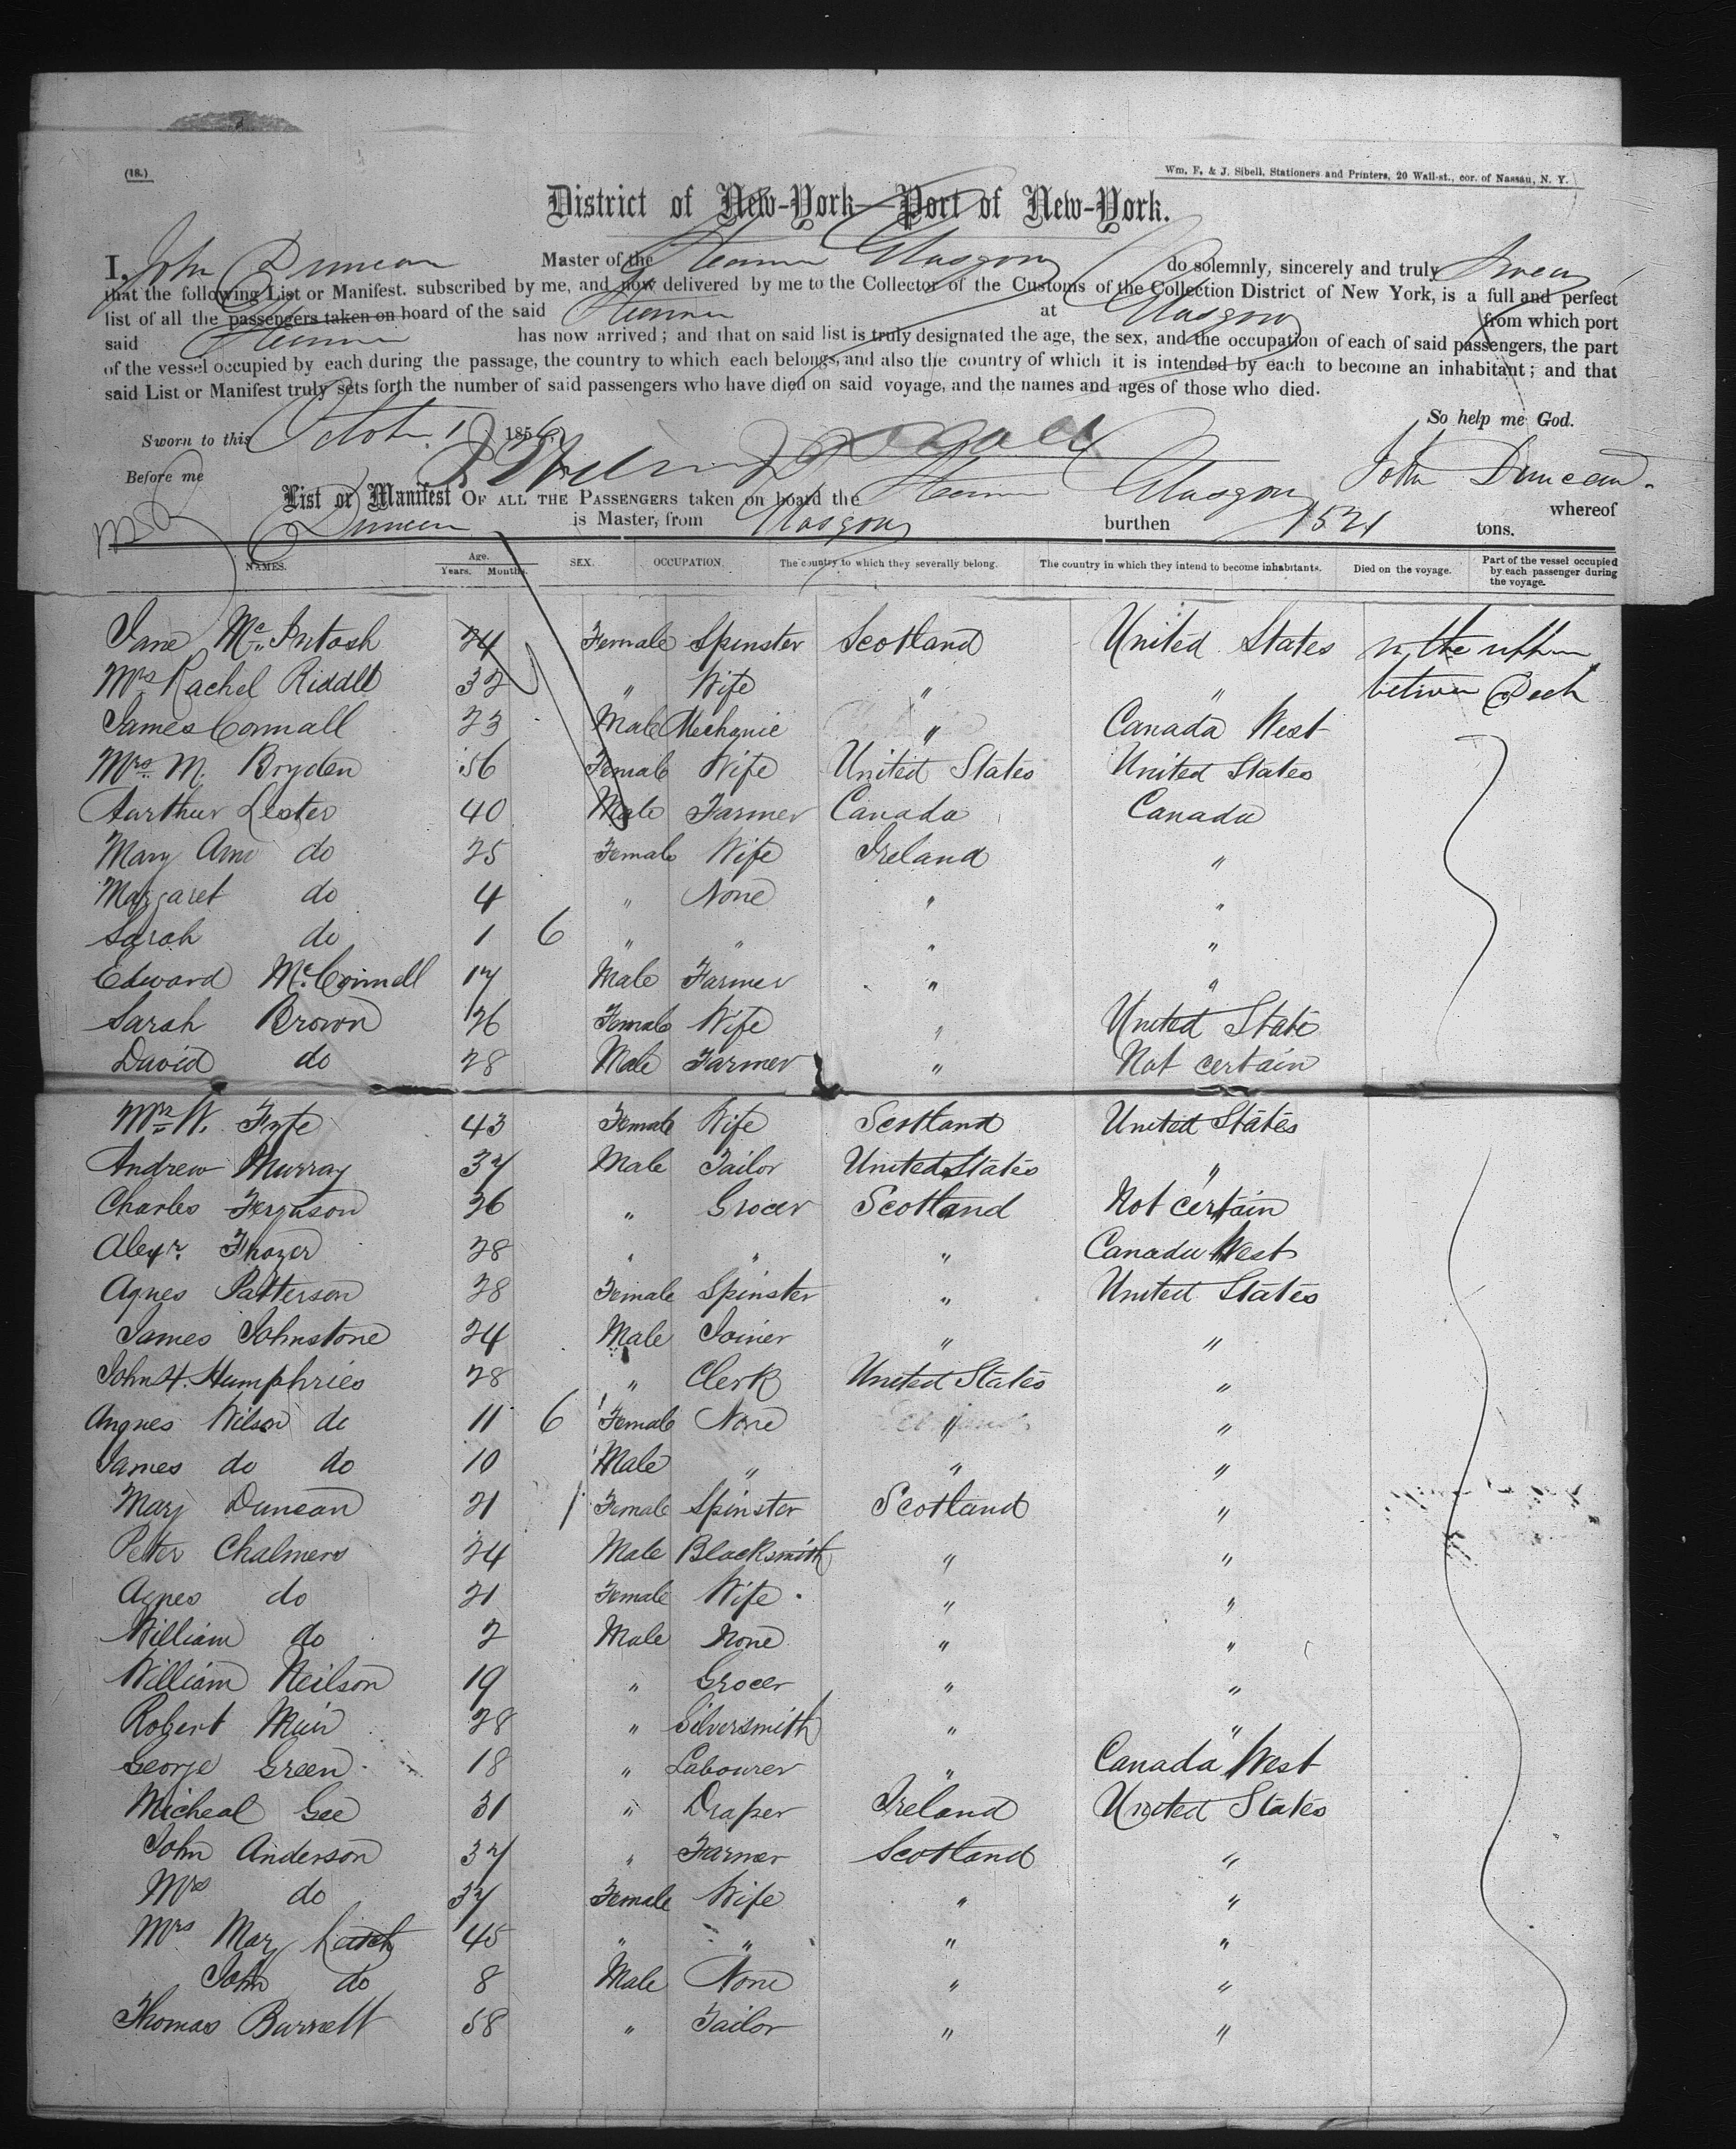 (18.)
Wm. F. & J. Sibell, Stationers and Printers, 20 Wall-st., cor. of Nassau, N. Y.
District of New-York—Port of New-York.
I, John Duncan Master of the Steamer Glasgow do solemnly, sincerely and truly Swear
that the following List or Manifest. subscribed by me, and now delivered by me to the Collector of the Customs of the Collection District of New York, is a full and perfect
list of all the passengers taken on board of the said Steamer at Glasgow from which port
said Steamer has now arrived; and that on said list is truly designated the age, the sex, and the occupation of each of said passengers, the part
of the vessel occupied by each during the passage, the country to which each belongs, and also the country of which it is intended by each to become an inhabitant; and that
said List or Manifest truly sets forth the number of said passengers who have died on said voyage, and the names and ages of those who died.
So help me God.
Sworn to this Octob. 1 1856
Before me John Duncan.
List or Manifest OF ALL THE PASSENGERS taken on board the Steamer Glasgow whereof
Duncan is Master, from Glasgow burthen 1521 tons.
NAMES. Age. Years. Months. SEX. OCCUPATION. The country to which they severally belong. The country in which they intend to become inhabitants. Died on the voyage. Part of the vessel occupied by each passenger during the voyage.
Jane McIntosh 24 Female Spinster Scotland United States in the upper
Mrs Rachel Riddle 32 " Wife " " between Deck
James Connall 23 Male Mechanic " Canada West
Mrs. M. Bryden 56 Female Wife United States United States
Aurthur Lester 40 Male Farmer Canada Canada
Mary Ann do 25 Female Wife Ireland "
Margaret do 4 " None " "
Sarah do 1 6 " " " "
Edward McConnell 17 Male Farmer " "
Sarah Brown 26 Female Wife " United State
David do 28 Male Farmer " Not certain
Mrs W. Fyfe 43 Female Wife Scotland United States
Andrew Murray 37 Male Tailor United States "
Charles Ferguson 26 " Grocer Scotland Not certain
Alexr. Frazer 28 " " " Canada West
Agnes Patterson 28 Female Spinster " United States
James Johnstone 24 Male Joiner " "
John H. Humphries 28 " Clerk United States "
Angnes Wilson do 11 6 Female None " "
James do do 10 Male " " "
Mary Duncan 21 1 Female Spinster Scotland "
Peter Chalmers 24 Male Blacksmith " "
Agnes do 21 Female Wife " "
William do 2 Male None " "
William Neilson 19 " Grocer " "
Robert Muir 28 " Silversmith " "
George Green 18 " Labourer " Canada West
Micheal Gee 31 " Draper Ireland United States
John Anderson 37 " Farmer Scotland "
Mrs do 37 Female Wife " "
Mrs Mary 45 " " " "
John do 8 Male None " "
Thomas Barrett 58 " Tailor " "